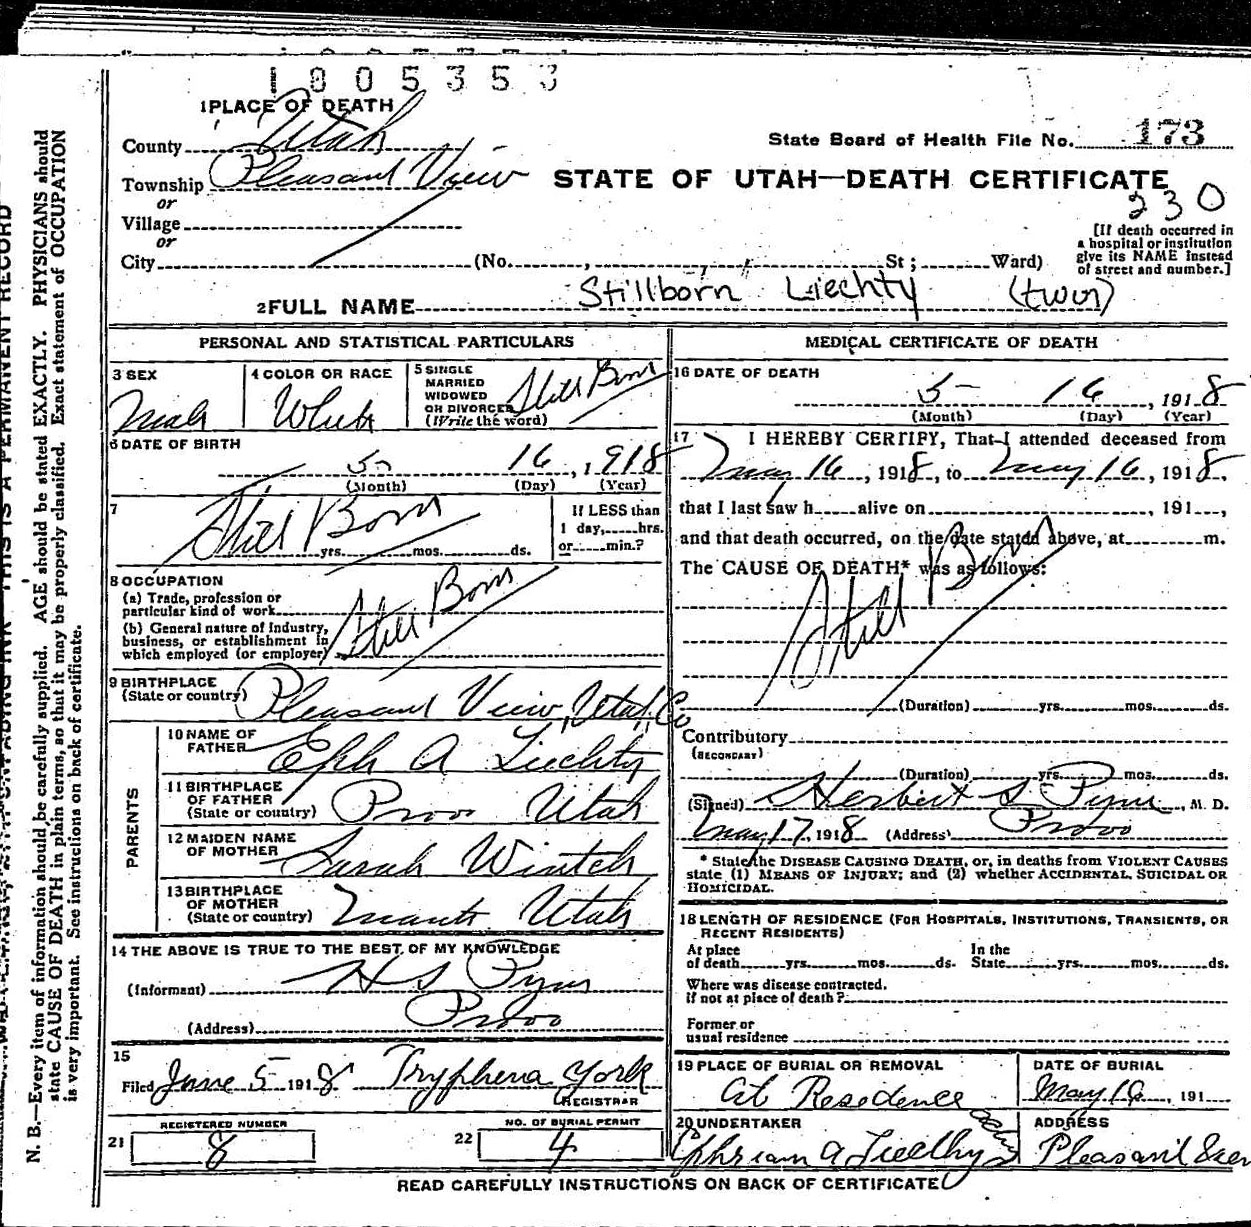 1005353
1 PLACE OF DEATH
County Utah
State Board of Health File No. 173
Township Pleasant View
STATE OF UTAH—DEATH CERTIFICATE
or
230
Village
or
[If death occurred in a hospital or institution give its NAME instead of street and number.]
City (No. , St ; Ward)
2 FULL NAME Stillborn Liechty (twin)
PERSONAL AND STATISTICAL PARTICULARS
3 SEX Male
4 COLOR OR RACE White
5 SINGLE MARRIED WIDOWED OR DIVORCED (Write the word) Still Born
6 DATE OF BIRTH
5 16, 1918
(Month) (Day) (Year)
7 Still Born
yrs. mos. ds.
If LESS than 1 day, hrs. or min.?
8 OCCUPATION
(a) Trade, profession or
particular kind of work
(b) General nature of Industry,
business, or establishment in
which employed (or employer)
Still Born
9 BIRTHPLACE
(State or country) Pleasant View, Utah, Co
PARENTS
10 NAME OF
FATHER Eph A Liechty
11 BIRTHPLACE
OF FATHER
(State or country) Provo Utah
12 MAIDEN NAME
OF MOTHER Sarah Wintch
13 BIRTHPLACE
OF MOTHER
(State or country) Manti Utah
14 THE ABOVE IS TRUE TO THE BEST OF MY KNOWLEDGE
(Informant) H S Pyne
(Address) Provo
15
Filed June 5 1918 Tryphena York
REGISTRAR
21 REGISTERED NUMBER 8
22 NO. OF BURIAL PERMIT 4
MEDICAL CERTIFICATE OF DEATH
16 DATE OF DEATH
5 16, 1918
(Month) (Day) (Year)
17 I HEREBY CERTIFY, That I attended deceased from
May 16, 1918, to May 16, 1918,
that I last saw h alive on , 191 ,
and that death occurred, on the date stated above, at m.
The CAUSE OF DEATH* was as follows:
Still Born
(Duration) yrs. mos. ds.
Contributory
(SECONDARY)
(Duration) yrs. mos. ds.
(Signed) Herbert S Pyne, M. D.
May 17, 1918 (Address) Provo
* State the DISEASE CAUSING DEATH, or, in deaths from VIOLENT CAUSES
state (1) MEANS OF INJURY; and (2) whether ACCIDENTAL, SUICIDAL OR
HOMICIDAL.
18 LENGTH OF RESIDENCE (FOR HOSPITALS, INSTITUTIONS, TRANSIENTS, OR
RECENT RESIDENTS)
At place of death yrs. mos. ds. In the State yrs. mos. ds.
Where was disease contracted,
if not at place of death?
Former or
usual residence
19 PLACE OF BURIAL OR REMOVAL
At Residence
DATE OF BURIAL
May 16, 191
20 UNDERTAKER
Ephriam A Liechty
ADDRESS
Pleasant View
READ CAREFULLY INSTRUCTIONS ON BACK OF CERTIFICATE
N. B.—Every item of information should be carefully supplied. AGE should be stated EXACTLY. PHYSICIANS should
state CAUSE OF DEATH in plain terms, so that it may be properly classified. Exact statement of OCCUPATION
is very important. See instructions on back of certificate.